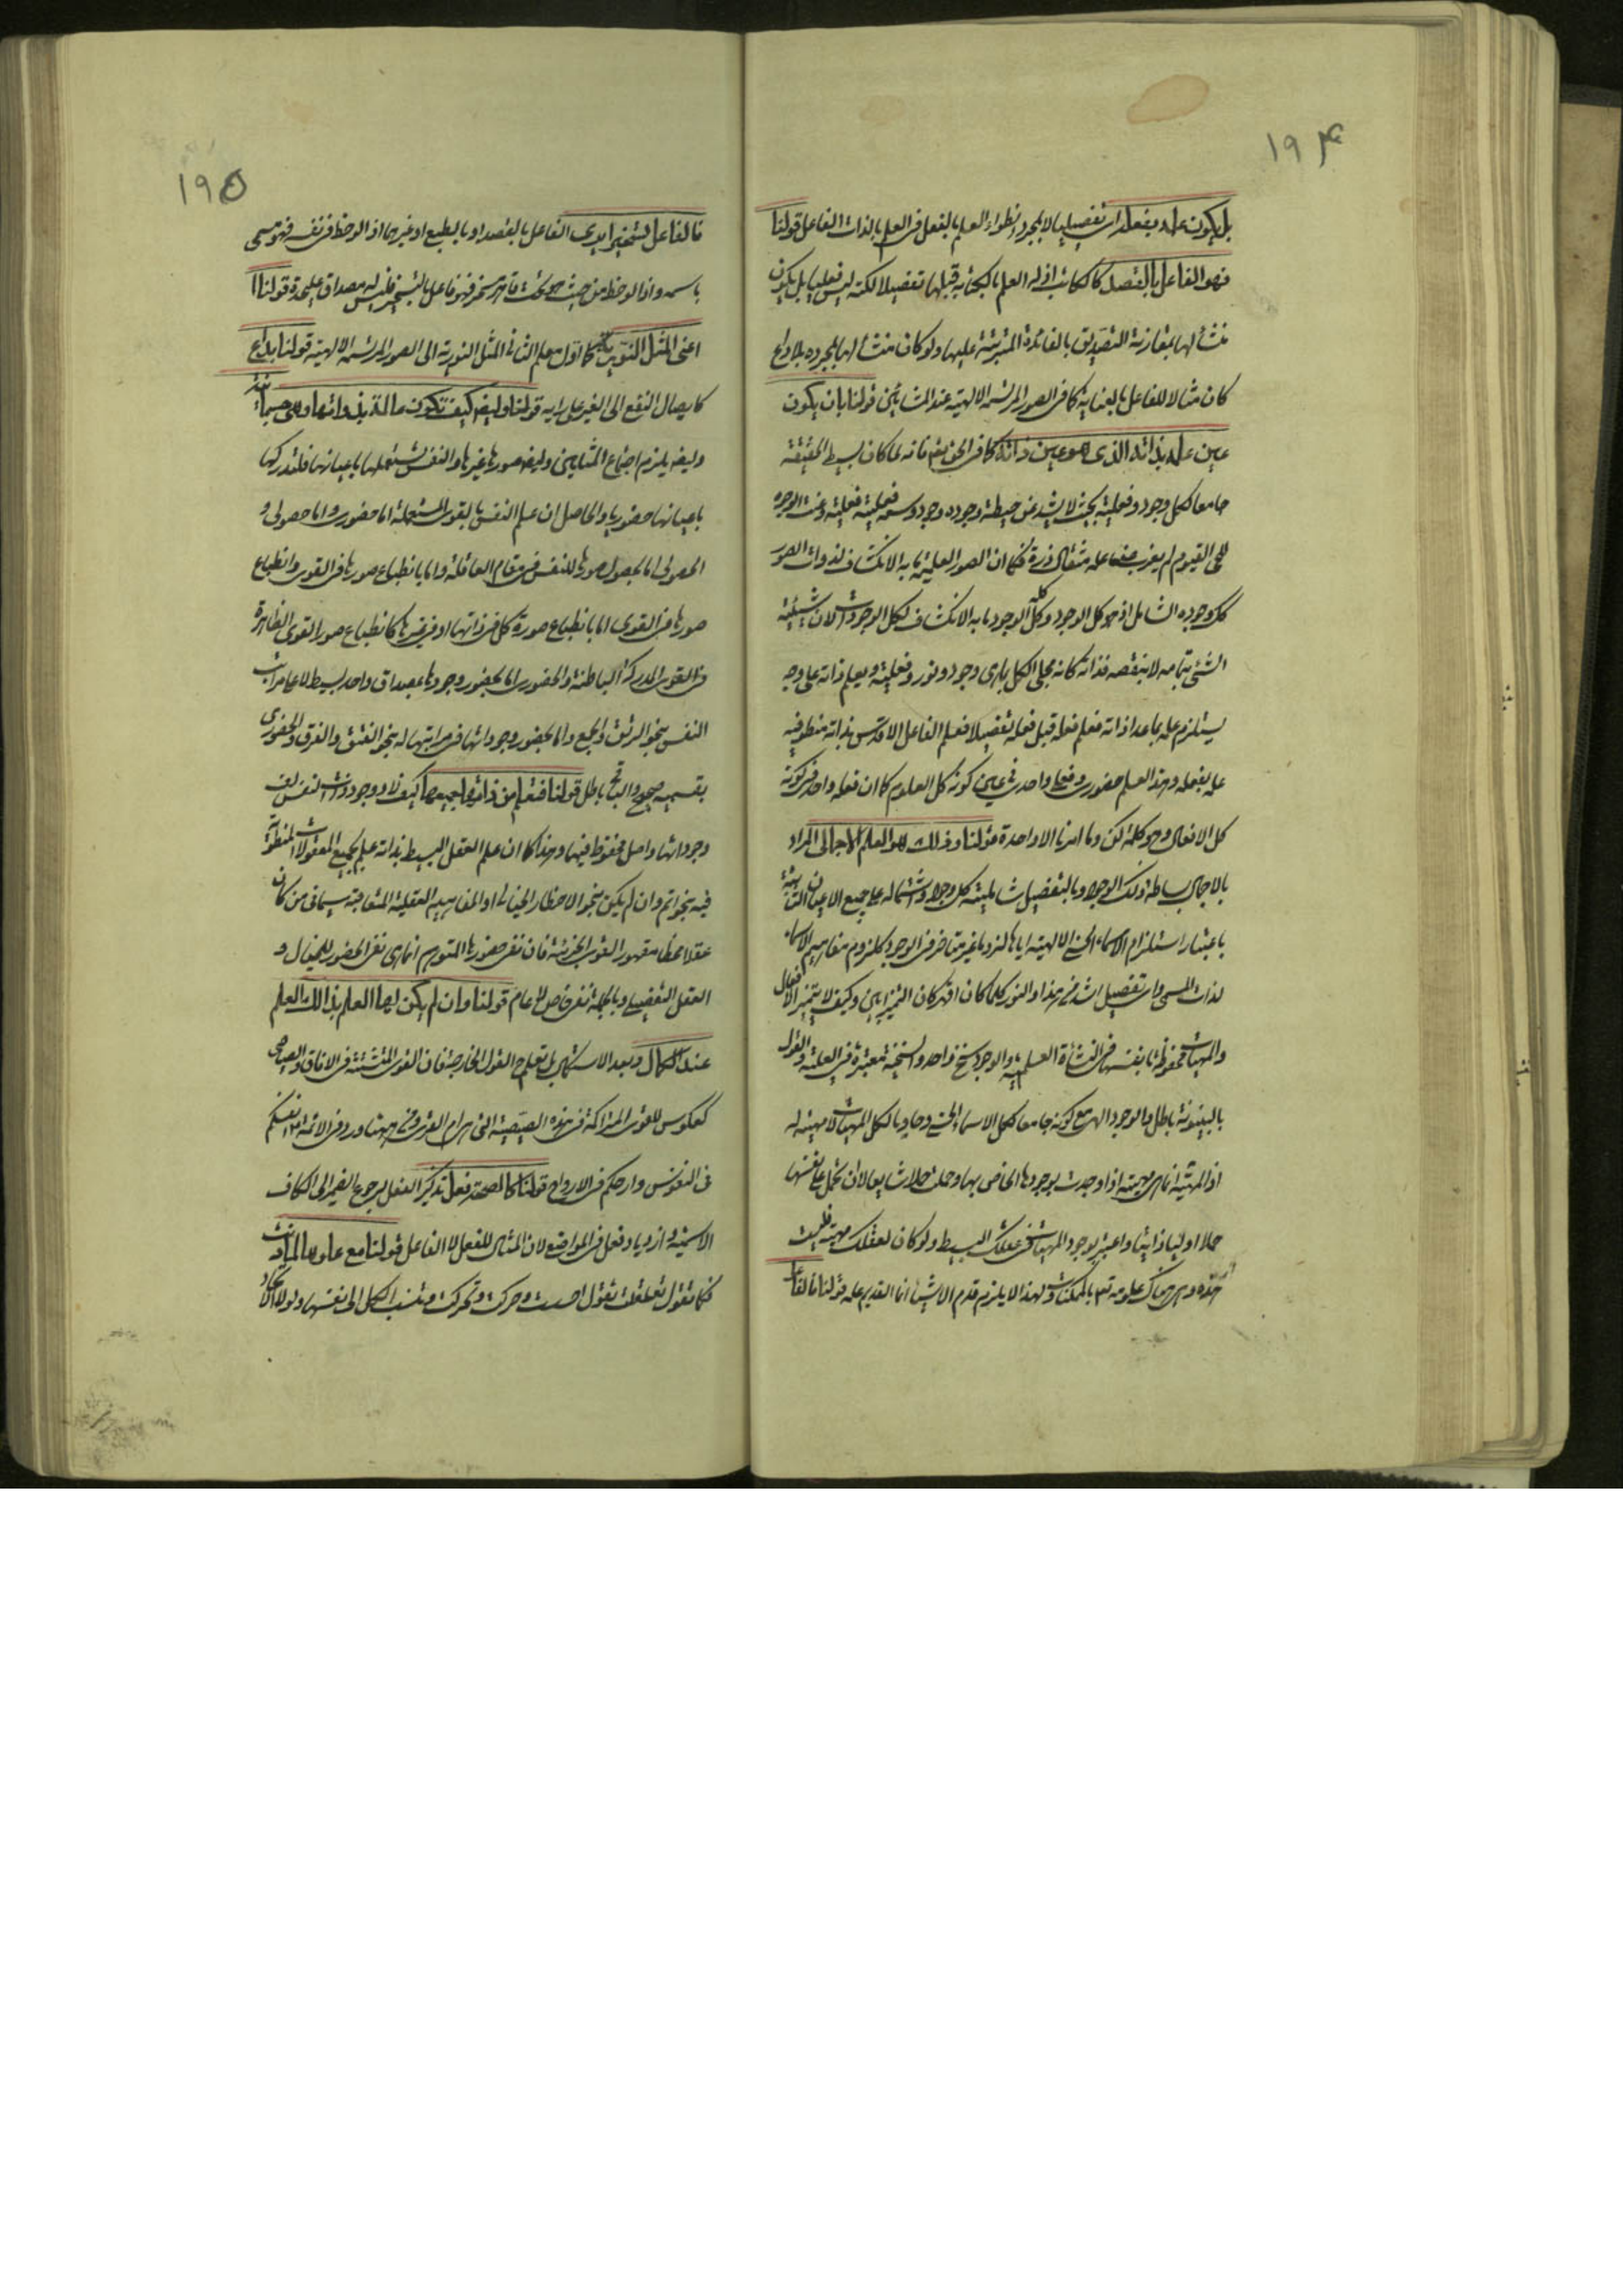 ۱۹۴
بل یکون علمه بفعله ای تفصیلیا لا بمجرد انطواء العلم بالفعل فی العلم بالذات الفاعل قولنا
فهو الفاعل بالقصد کالکاتب اذ له العلم بالکتابة قبلها تفصیلا لکنه لیس فعلیا بل یکون
منشألها بمقارنة التصدیق بالفائدة المترتبة علیها ولو کان منشألها بمجرده بلا داع
کان مثالا للفاعل بالعنایة کما فی الصور المرتسمة الالهیة عند المشائین قولنا بان یکون
عین علمه بذاته الذی هو عین ذاته کما فی الحق تعم فانه لما کان بسیط الحقیقة
جامعا لکل وجود وفعلیة بحیث لا یشذ عن حیطة وجوده وجود وسعة فعلیته فعلیة وعنت الوجوه
للحی القیوم لم یعزب عن علمه مثقال ذرة فکما ان الصور العلمیة ما به الانکشاف لذوات الصور
کک وجوده الشامل اذ هو کل الوجود وکله الوجود ما به الانکشاف لکل الوجودات لان شیئیة
الشئ بتمامه لا بنقصه فذاته کانه مجلی الکل یاری وجود ونور وفعلیة ویعلم ذاته علی وجه
یستلزم علمه بما عدا ذاته فعلم فعله قبل فعله تفصیلا فعلم الفاعل الاقدس بذاته منطو فیه
علمه بفعله وهذا العلم حضوری وفعلی واحد فی عین کونه کل العلوم کما ان فعله واحد فی کونه
کل الافعال وهو کلمة کن وما امرنا الا واحدة قولنا وذلک هو العلم الاجمالی المراد
بالاجمال بساطة ذلک الوجود وبالتفصیل شاملیته کل وجود واشتماله علی جمیع الاعیان الثابتة
باعتبار استلزام الاسماء الحسنی الالهیة ایاها لزوما غیر متاخر فی الوجود کلزوم مفاهیم الاسماء
لذات المسمی وای تفصیل اشد من هذا والنور کلما کان اقهر کان التمیز ابین وکیف لا یتمیز الافعال
والمهیات محفوظة بانفسها فی النشأة العلمیة والوجود سنخ واحد والسنخیة معتبرة فی العلیة والقول
بالبینونة باطل والوجود الهی مع کونه جامعا لکل الاسماء الحسنی وحاویا لکل المهیات لا مهیة له
اذ المهیة انما هی مهیة اذا وجدت بوجودها الخاص بها وحملت حملا شایعا لا ان تحمل علی نفسها
حملا اولیا ذاتیا واعتبر بوجود المهیات فی عقلک البسیط ولو کان لعقلک مهیة فلیست
هذه وهی هناک علومه تعم بالممکنات ولهذا لا یلزم قدم الاشیاء انما القدیم علمه قولنا فالفاعل
۱۹۵
فالفاعل تسخیرا یدی الفاعل بالقصد او بالطبع او غیرهما اذا لوحظ فی نفسه فهو مسمی
باسمه واذا لوحظ من حیث هو تحت قاهر مسخر فهو فاعل بالتسخیر فلیس له مصداق علیحدة قولنا
اعنی المثل النوریة کما اول معلم الثانی المثل النوریة الی الصور المرتسمة الالهیة قولنا بداع
کایصال النفع الی الغیر علی رایه قولنا ولیضا کیف تکون عالمة بذواتها وهی جسمانیة
ولیضا یلزم اجتماع المثلین ولیضا صورها غیرها والنفس تستعملها باعیانها فلتدرکها
باعیانها حضوریا والحاصل ان علم النفس بالقوی المستعملة اما حضوری واما حصولی و
الحصولی اما بحصول صورها للنفس فی مقام العاقلة واما بانطباع صورها فی القوی وانطباع
صورها فی القوی اما بانطباع صورة کل فی ذاتها او فی غیرها کانطباع صور القوی الظاهرة
فی القوی المدرکة الباطنة والحضوری اما بحضور وجودها بمصداق واحد بسیط لاعلی مراتب
النفس بنحو الرتق والجمع واما بحضور وجوداتها فی مراتبها له بنحو الفتق والفرق والحضوری
بقسمیه صحیح والباقی باطل قولنا فتعلم من ذاتها جمیعها کیف لا ووجود ذات النفس لف
وجوداتها واصل محفوظ فیها وهذا کما ان علم العقل البسیط بذاته علم بجمیع المعقولات المنطویة
فیه بنحو اتم وان لم یکن بنحو الاخطار الخیالی او المفاهیم العقلیة المتعاقبة سیما فی من کان
عقلا عملیا مقهور القوی الجزئیة فان نفی حضورها المتوهم انما هی نفی الحضور للخیال و
العقل التفصیلی وبالجملة نفی خاص لا عام قولنا وان لم یکن لها العلم بذلک العلم
عند الکمال وبعد الاستکمال بل تعلم القوی الخارجة فان القوی المتشتتة فی الافاق والصیاصی
کعکوس للقوی المتراکمة فی هذه الصیصیة التی هرام القری ومن هیهنا ورد فی الائمة انفسکم
فی النفوس وارواحکم فی الارواح قولنا کالصحة فعل تذکیر الفعل یرجع الضمیر الی الکاف
الاسمیة وازدیاد فعل فی المواضع لان المثال للفعل لا الفاعل قولنا مع علوها المادیة
فکما تقول تعقلت تقول احسست وحرکت وتحرکت وتنسب الکل الی نفسها ولولا الاتحاد